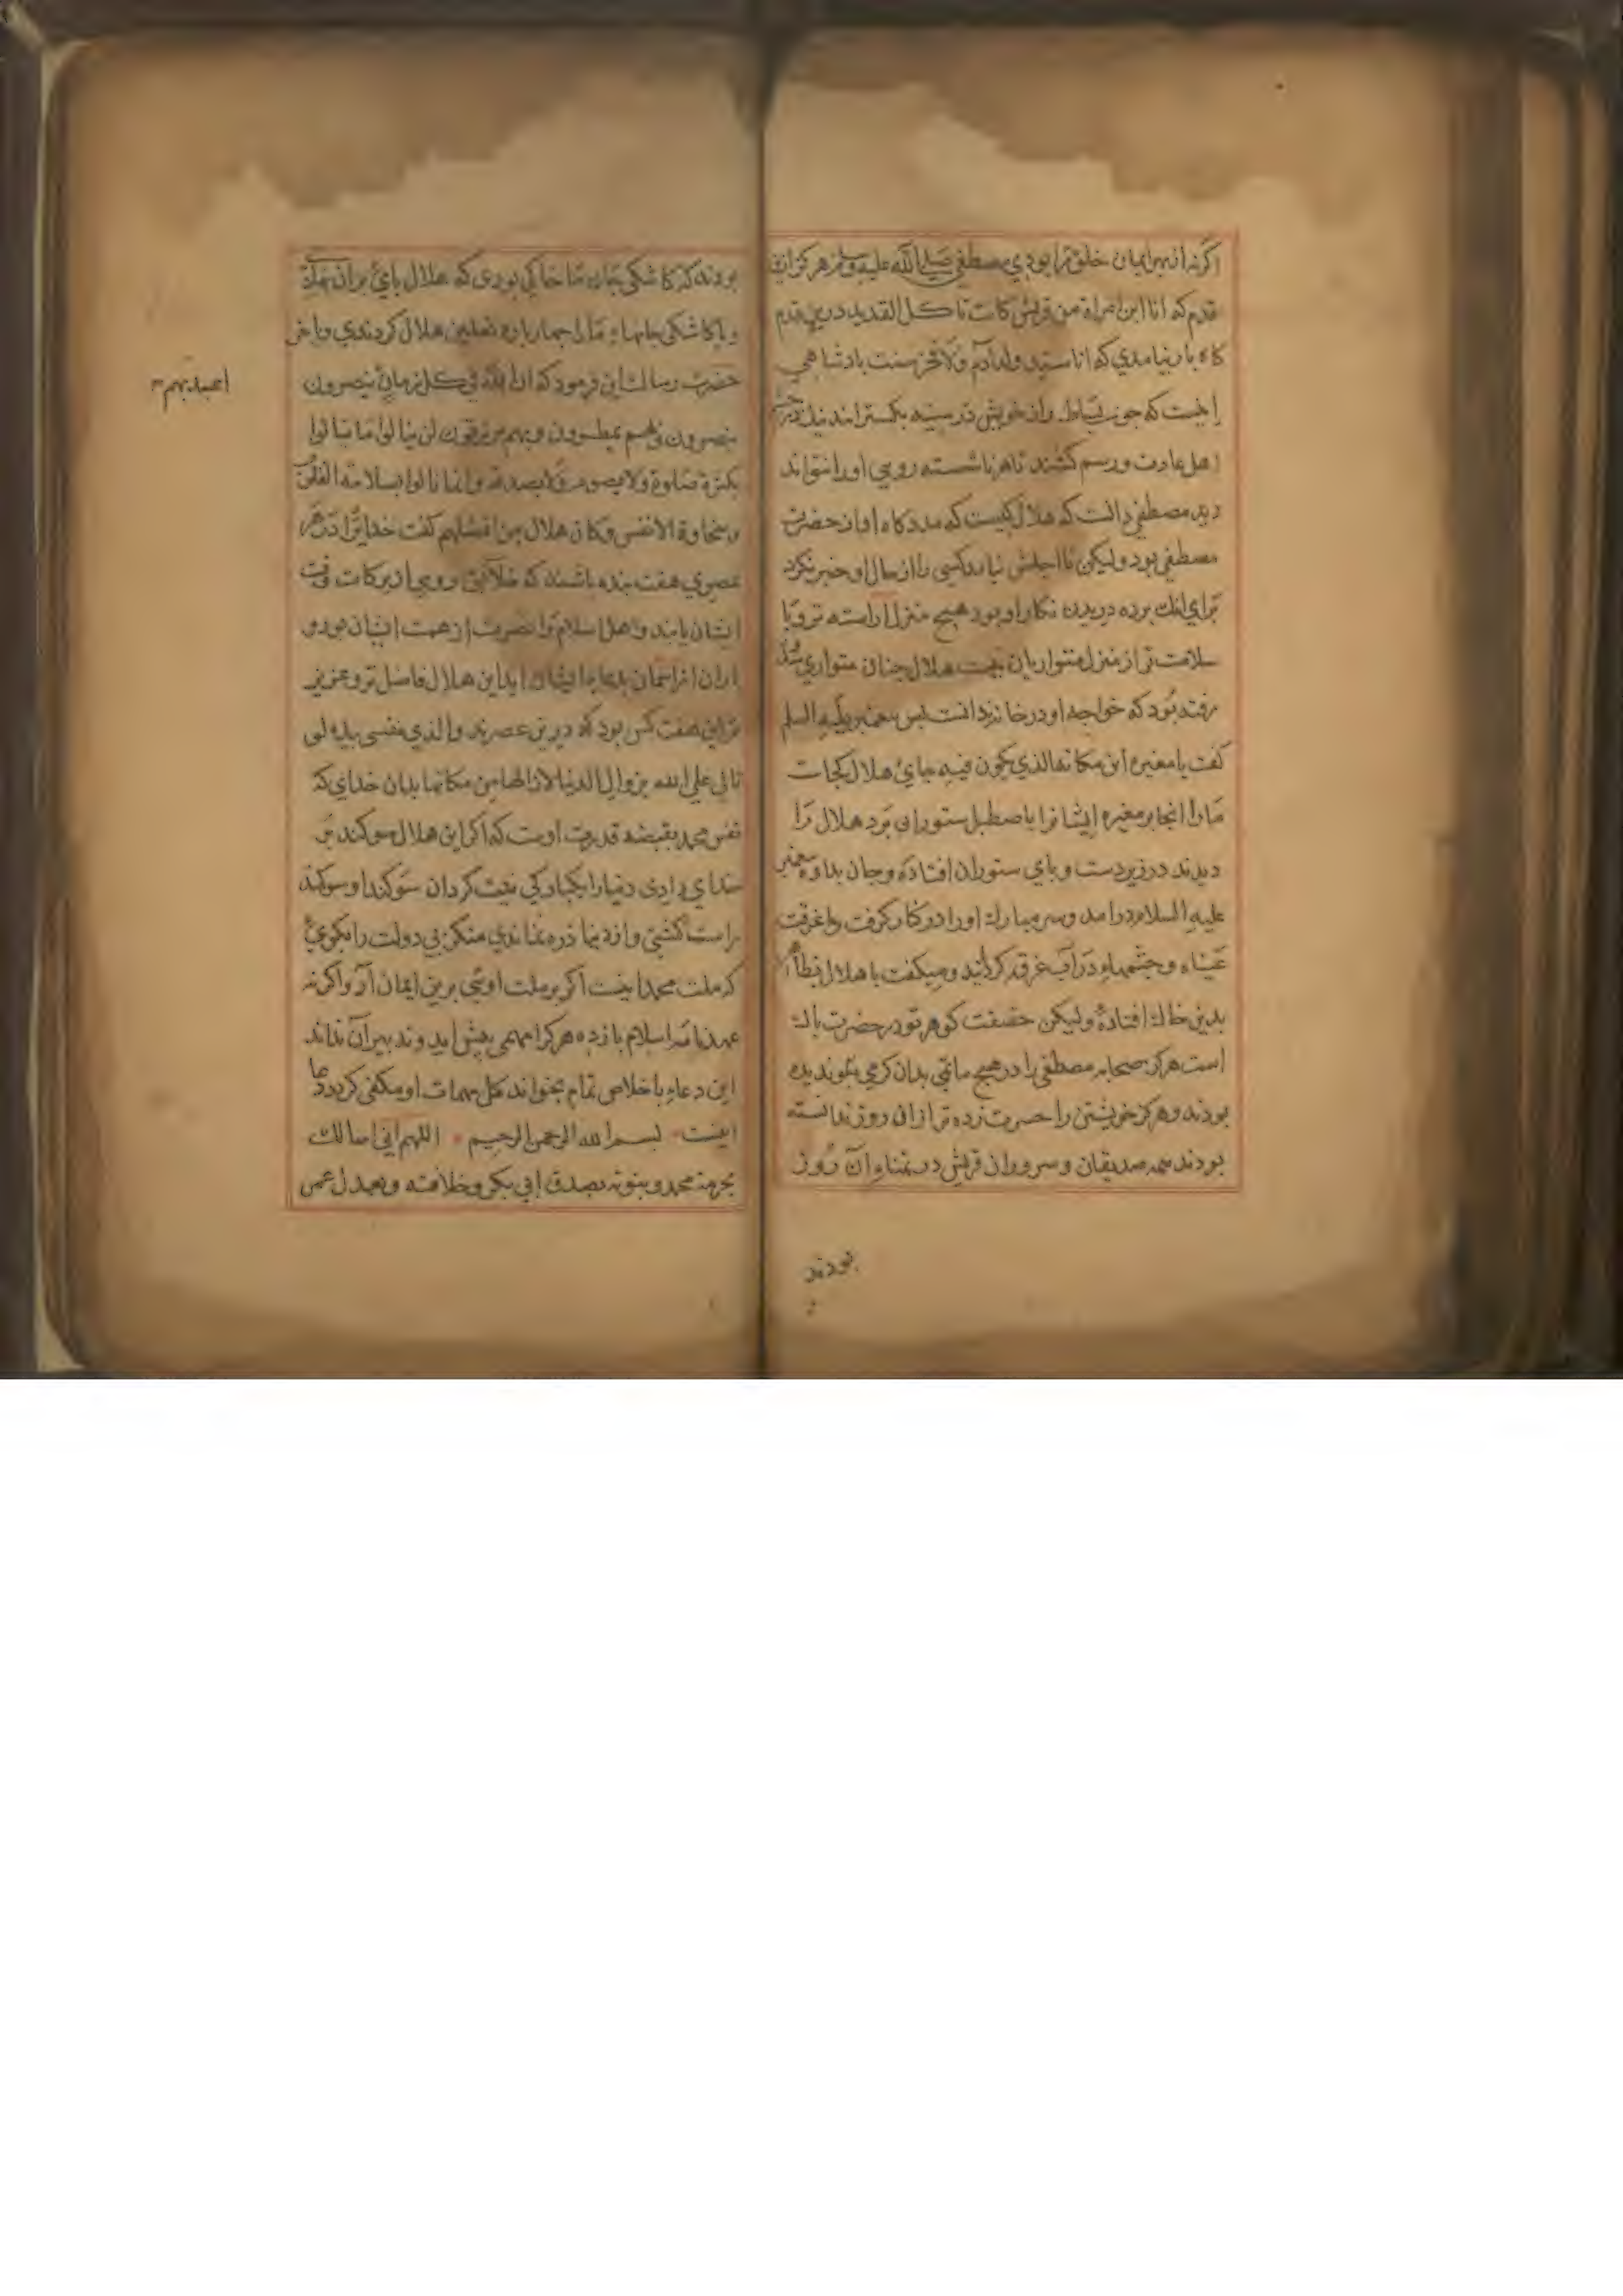 اگر نه از بهر ایمان خلق را بودي مصطفی صلی الله علیه وسلم هرگز از
قدم که انا ابن امراة من قریش کانت تاکل القدید درین قدم
گاه باز نیامدي که انا سید ولد آدم ولا فخر سنت بادشاهي
اینست که چون بساط راز خویش در سینه بگسترانند
اهل عادت و رسم کشند تا هر ناشسته رویي او را نتواند
دید مصطفی دانست که هلال کیست که مددگاه او از حضرت
مصطفی بود ولیکن تا اجلش نیامد کسی را از حال او خبر نکرد
برای انك پرده دریدن نه کار او بود هیچ منزل اراسته تر و با
سلامت تر از منزل متواریان نیست هلال چنان متواري
رفته بود که خواجه او در خانه ندانست پس پیغمبر علیه السلم
گفت یا مغیره این مکانه الذي یکون فیه جاي هلال کجاست
مارا انجا بر مغیره ایشانرا باصطبل ستوران برد هلال را
دیدند در زیر دست و پاي ستوران افتاده و جان بداده پیغمبر
علیه السلام درامد و سر مبارك او را در کنار گرفت واغرقت
عیناه و چشمهاء در آب غرقه کردانید و میکفت یا هلال
بدین خاك افتادهٔ ولیکن حقیقت گوهر تو در حضرت پاك
است هرگز صحابه مصطفی را در هیچ ماتمی بدان گرمي ندیده
بودند و هرگز خویشتن را حسرت زده تر از ان روز ندانسته
بودند همه صدیقان و سروران قریش در تمناء آن روز
بودند
بودند که کاشکی بجاء ما خاکی بودی که هلال پاي بران نهاده
و یا کاشکی جانهاء ما را نعلین هلال کردندي و اخر
حضرت رسالت این فرمود که ان لله في کل زمان ینصرون
ینصرون وبهم یمطرون وبهم یرزقون لن ینالوا ما نالوا
بکثرة صلوة ولا بصوم ولا بصدقة وانما نالوا بسلامة القلوب
وسخاوة الانفس وکان هلال من افضلهم گفت خدایرا در هر
عصري هفت بنده باشند که خلایق روزی از برکات وقت
ایشان یابند و اهل اسلام را نصرت از همت ایشان بود و
باران از اسمان بدعاء ایشان اید این هلال فاضل تر و عزیز
تر این هفت کس بود که درین عصرند والذي نفسي بیده لو
تالی علی الله بزوال الدنیا لازالها من مکانها بدان خدای که
نفس محمد بقبضه قدرت اوست که اگر این هلال سوگند بر
خداي دادی دنیا را یکبارگی نیست گردان سوگند او سوگند
راست گشتي و از دنیا ذره نماندي منکر بی دولت را بگوي
که ملت محمد اینست اگر بر ملت اویي برین ایمان آر و اگر نه
عهدنامه اسلام باز ده هرکرا مهمی پیش اید و تدبیر آن نداند
این دعاء باخلاص تمام بخواند کل مهمات او مکفی گردد دعا
اینست بسم الله الرحمن الرحیم اللهم اني اسالك
بحرمة محمد ونبوته بصدق ابي بکر وخلافته وبعدل عمر